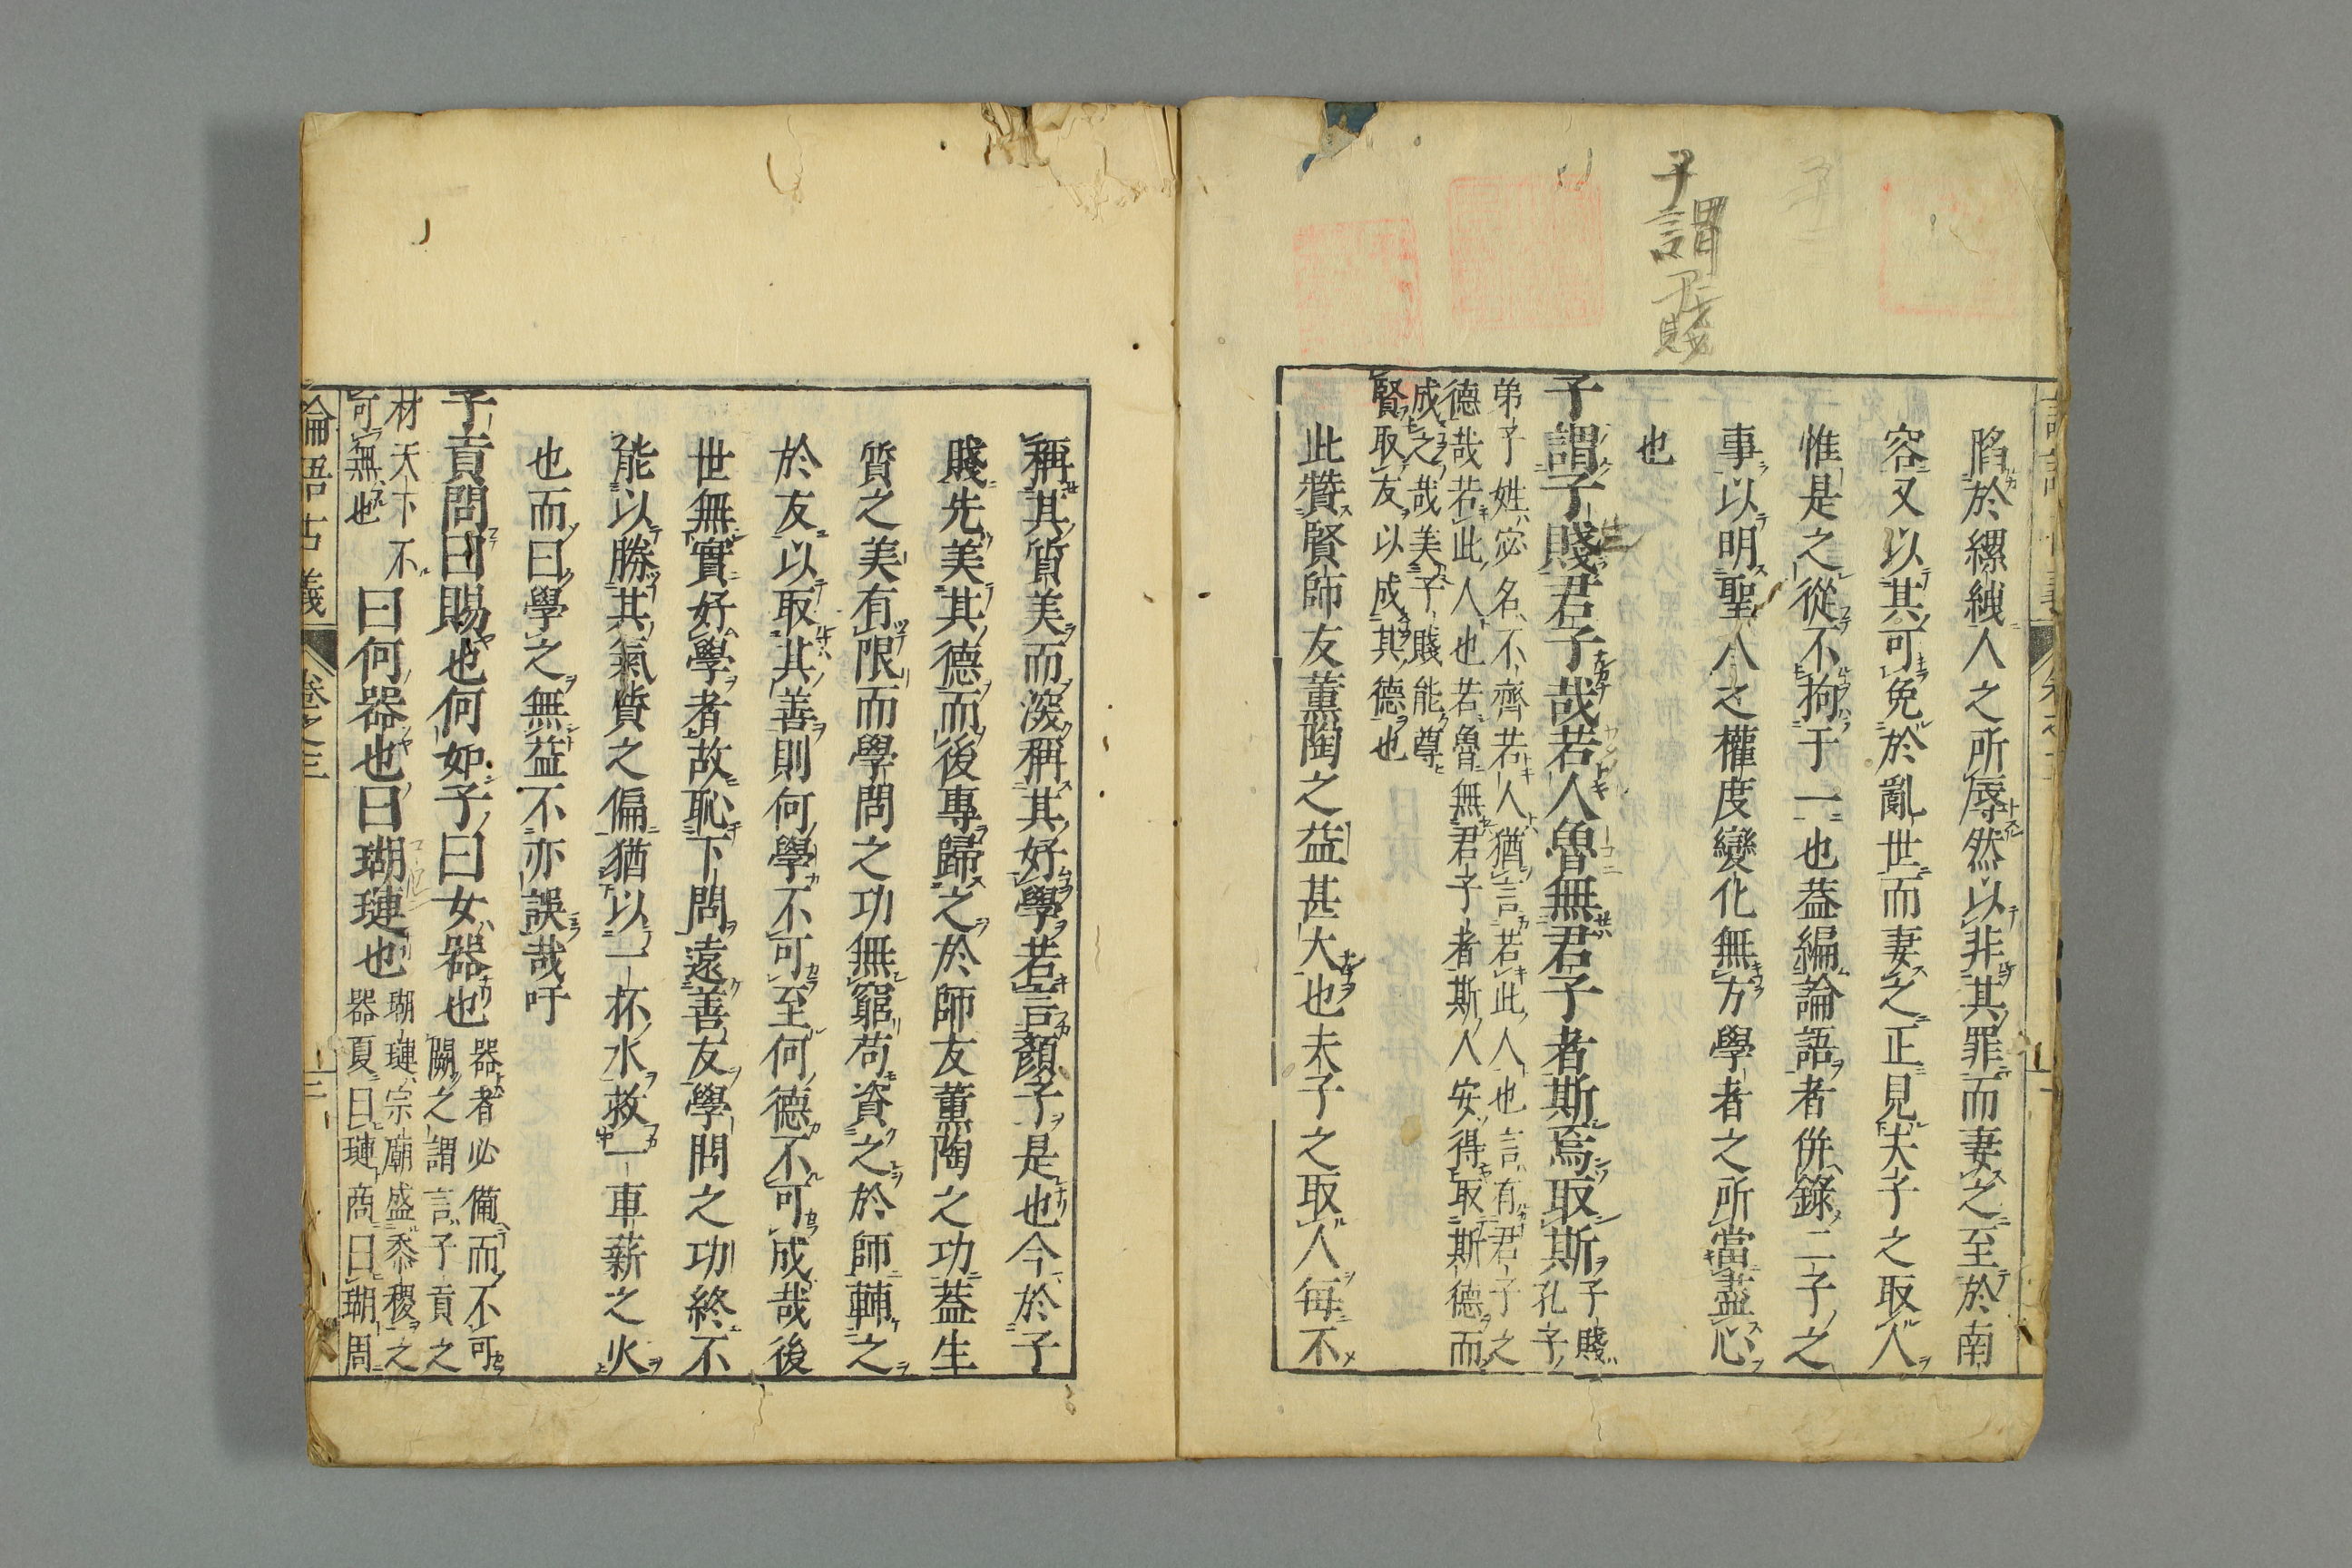 子謂子賤
陷於縲絏人之所辱然以非其罪而妻之至於南
容又以其可免於亂世而妻之正見夫子之取人
惟是之從不拘于一也蓋編論語者併錄二子之
事以明聖人之權度變化無方學者之所當盡心
也
子謂子賤君子哉若人魯無君子者斯焉取斯
子賤孔子
弟子姓宓名不齊若人猶言若此人也言有君子之
德哉若此人也若魯無君子者斯人安得取斯德而
成之哉美子賤能尊
賢取友以成其德也
此贊賢師友薰陶之益甚大也夫子之取人每不
稱其質美而深稱其好學若言顏子是也今於子
賤先美其德而後專歸之於師友薰陶之功蓋生
質之美有限而學問之功無窮苟資之於師輔之
於友以取其善則何學不可至何德不可成哉後
世無實好學者故恥下問遠善友學問之功終不
能以勝其氣質之偏猶以一杯水救一車薪之火
也而曰學之無益不亦誤哉吁
子貢問曰賜也何如子曰女器也
器者必備而不可
闕之謂言子貢之
材天下不
可無也
曰何器也曰瑚璉也
瑚璉宗廟盛黍稷之
器夏曰璉商曰瑚周
論語古義 卷之三